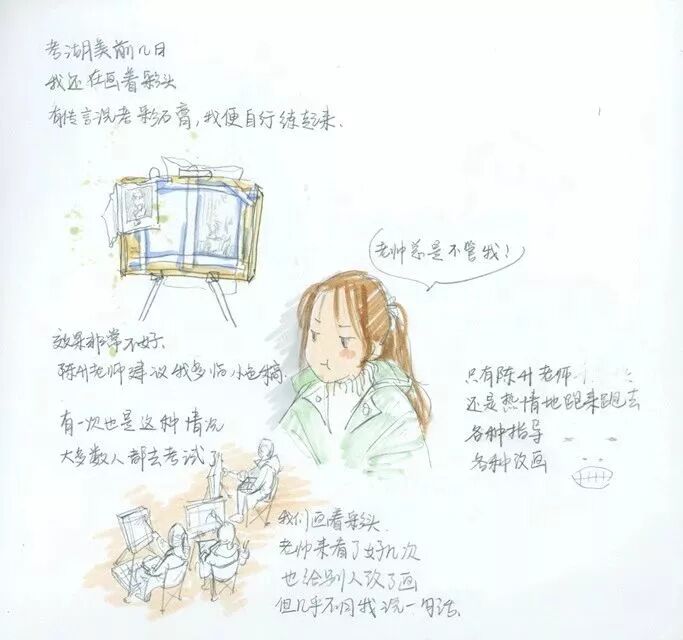 考湖美前几日
我还在画着彩头
有传言说考彩石膏,我便自行练起来.
老师总是不管我!
效果非常不好.
陈升老师建议我多临小色稿.
只有陈升老师
还是热情地跑来跑去
各种指导
各种改画
有一次也是这种情况
大多数人都去考试了
我们画着彩头.
老师来看了好几次
也给别人改了画
但几乎不同我说一句话.